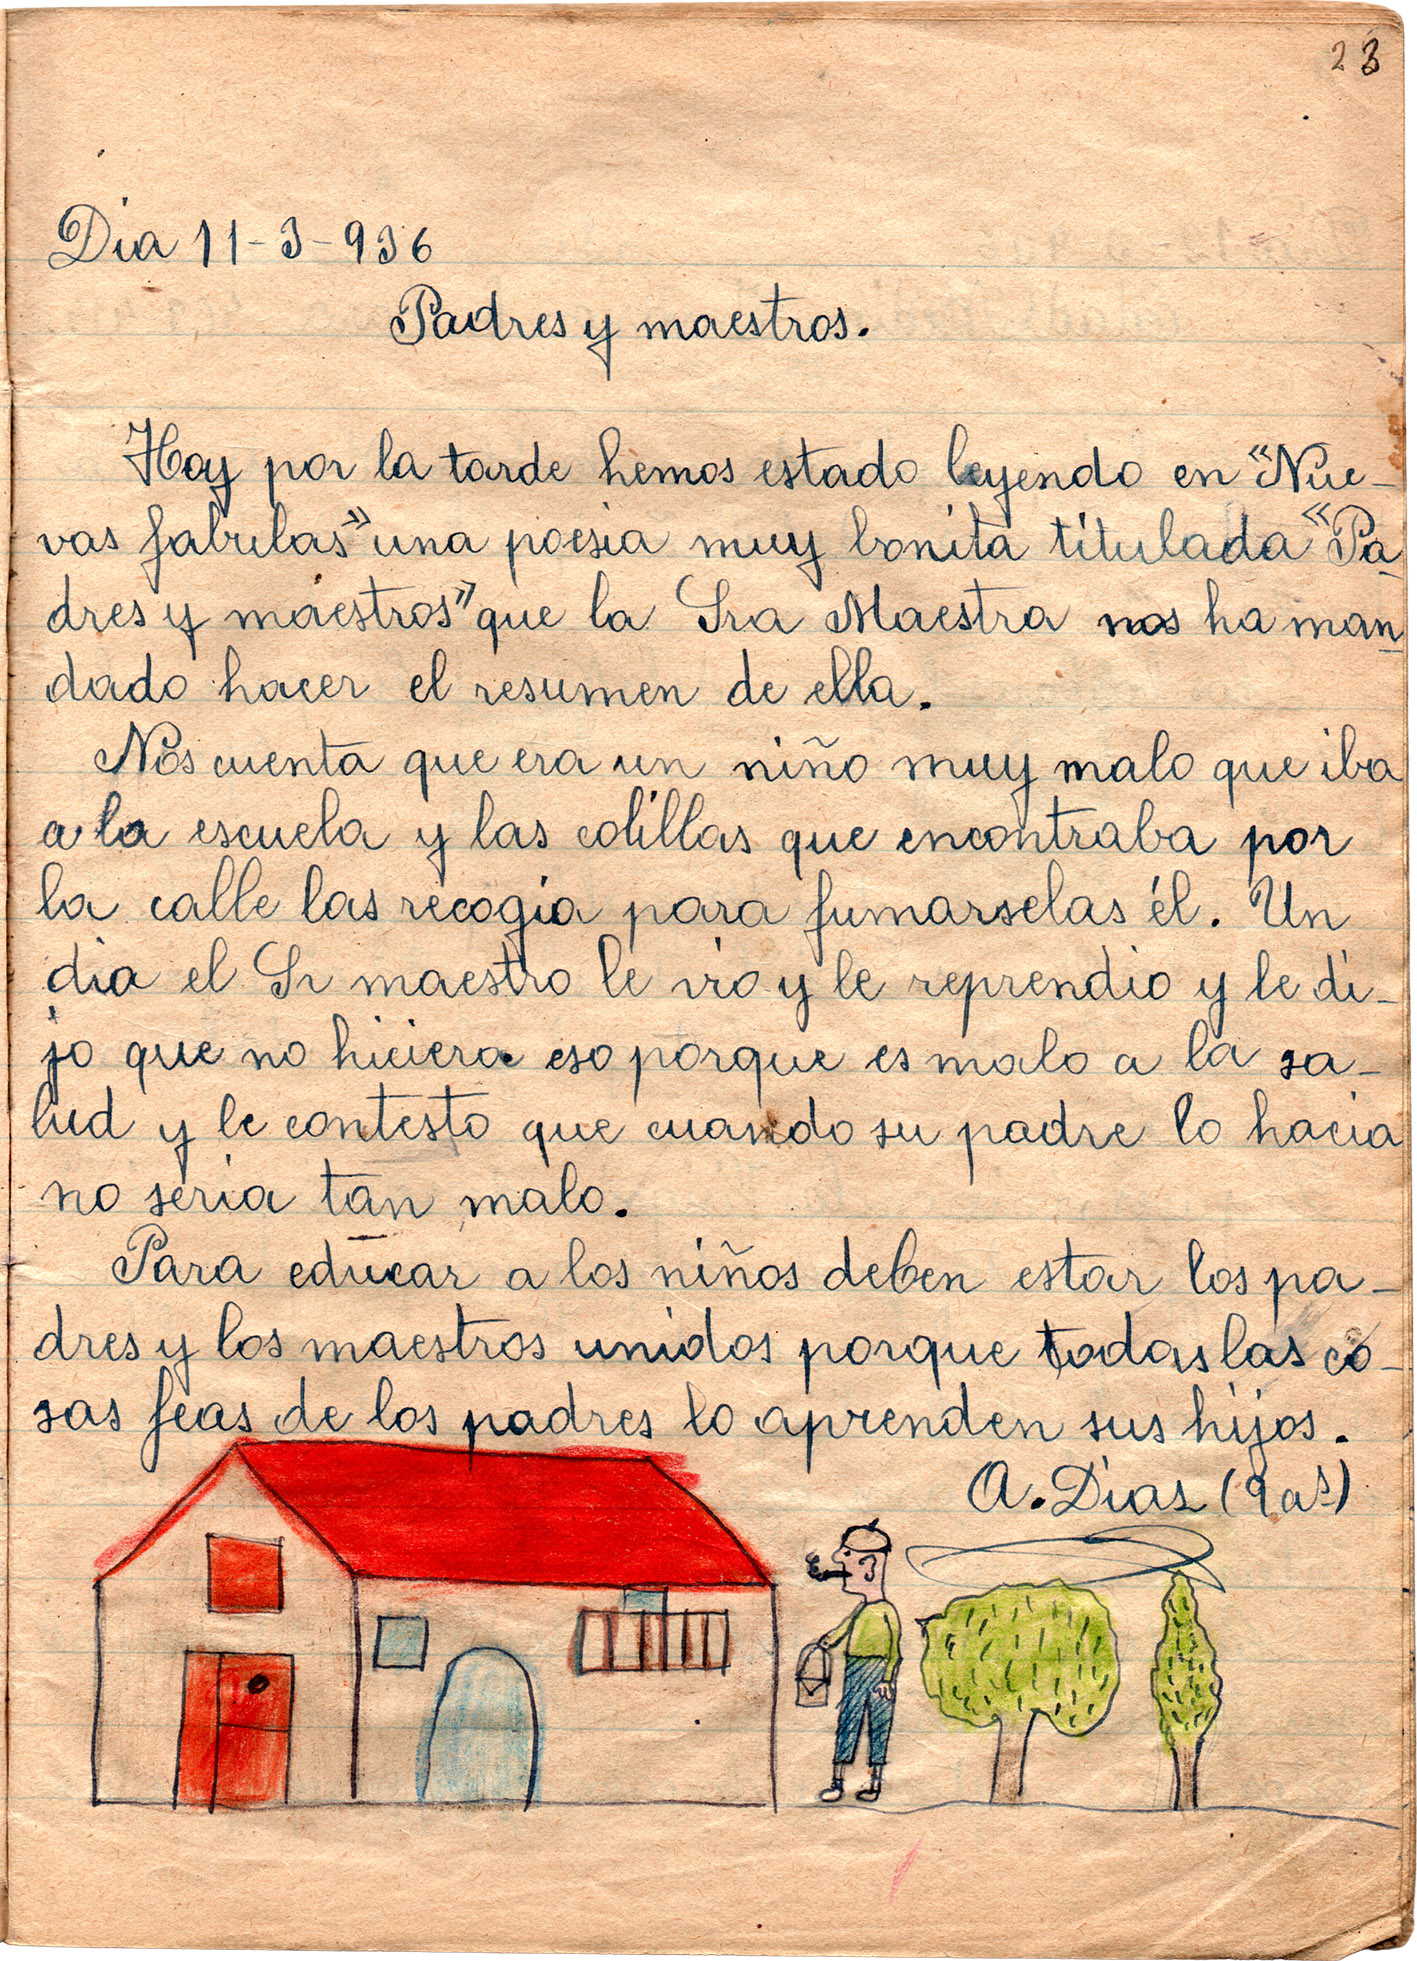 23
Dia 11-3-936
Padres y maestros.
Hoy por la tarde hemos estado leyendo en "Nue-
vas fabulas" una poesia muy bonita titulada "Pa-
dres y maestros" que la Sra Maestra nos ha man-
dado hacer el resumen de ella.
Nos cuenta que era un niño muy malo que iba
a la escuela y las colillas que encontraba por
la calle las recogia para fumarselas él. Un
dia el Sr maestro le vio y le reprendio y le di-
jo que no hiciera eso porque es malo a la sa-
lud y le contesto que cuando su padre lo hacia
no seria tan malo.
Para educar a los niños deben estar los pa-
dres y los maestros unidos porque todas las co-
sas feas de los padres lo aprenden sus hijos.
A. Dias (9 as)